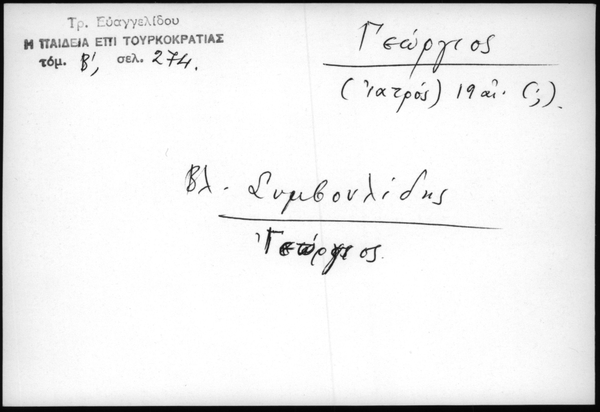 Τρ. Εὐαγγελίδου
Η ΠΑΙΔΕΙΑ ΕΠΙ ΤΟΥΡΚΟΚΡΑΤΙΑΣ
τόμ. Β', σελ. 274.
Γεώργιος
(ἰατρός) 19 αἰ. (;).
Βλ. Συμβουλίδης
Γεώργιος.